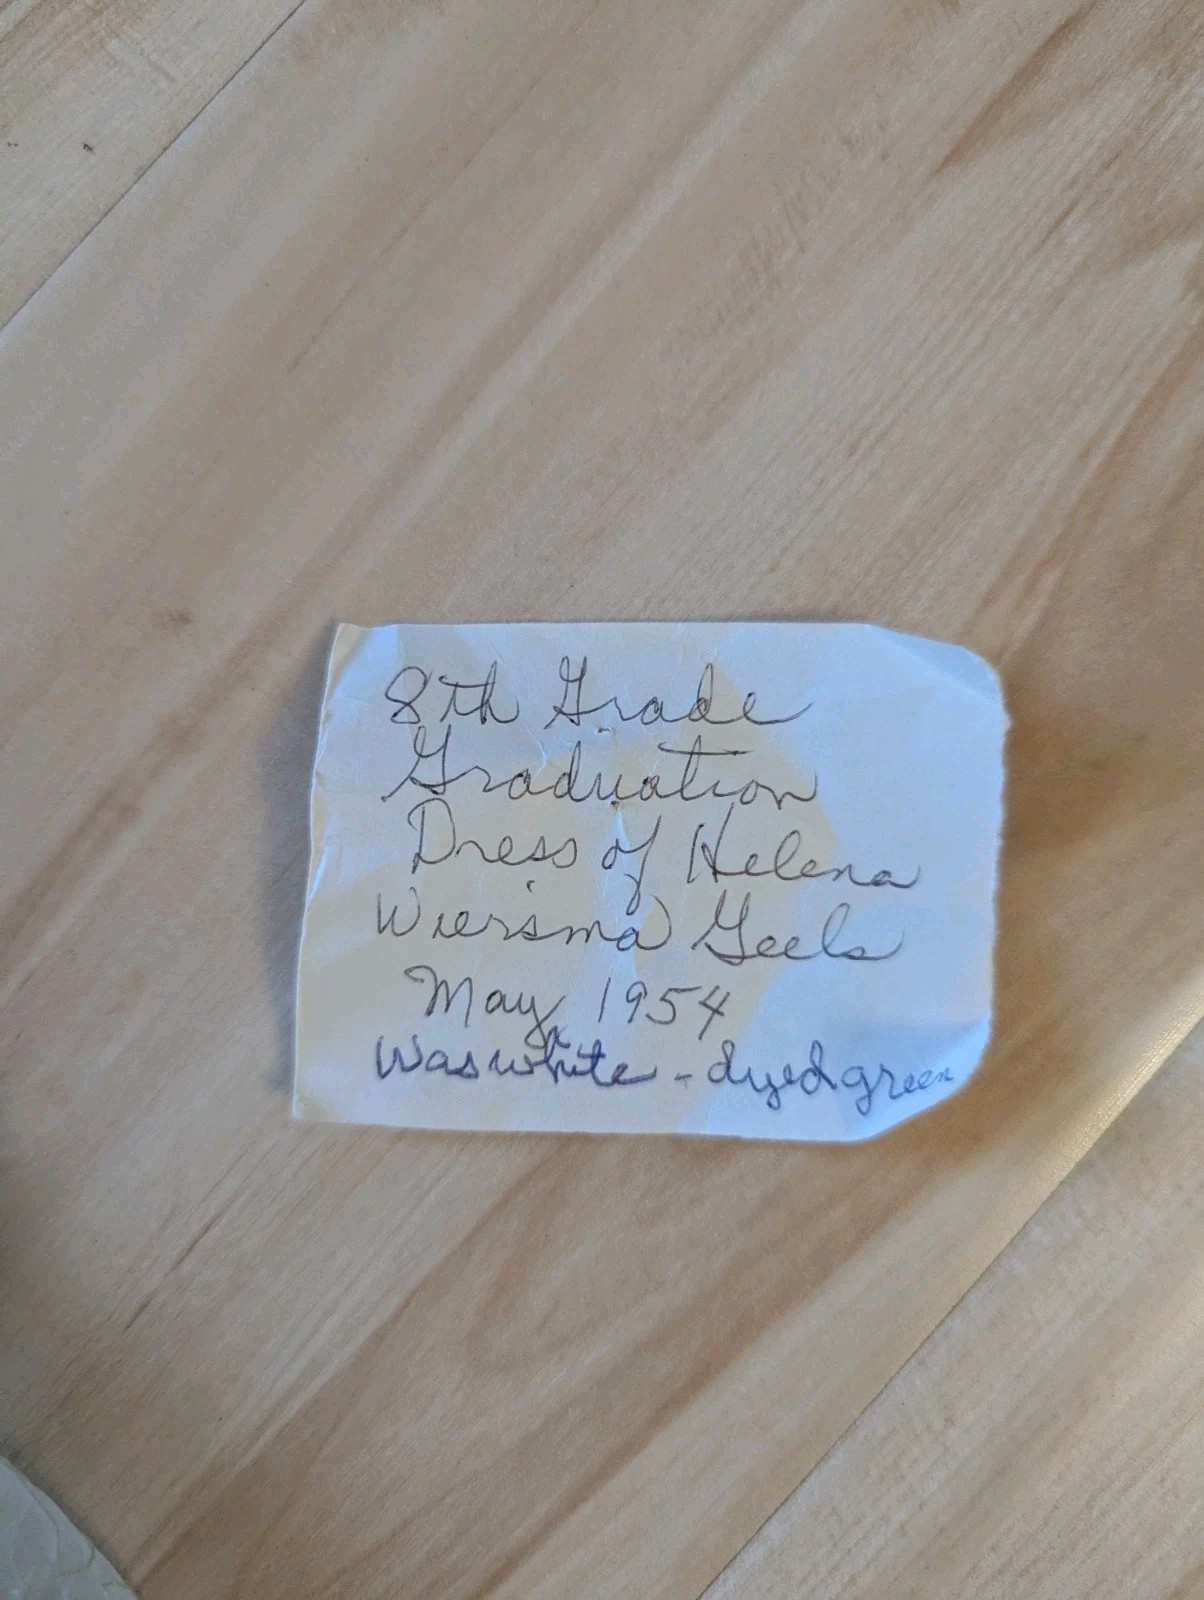 8th Grade
Graduation
Dress of Helena
Wiersma Geels
May 1954
Was white - dyed green